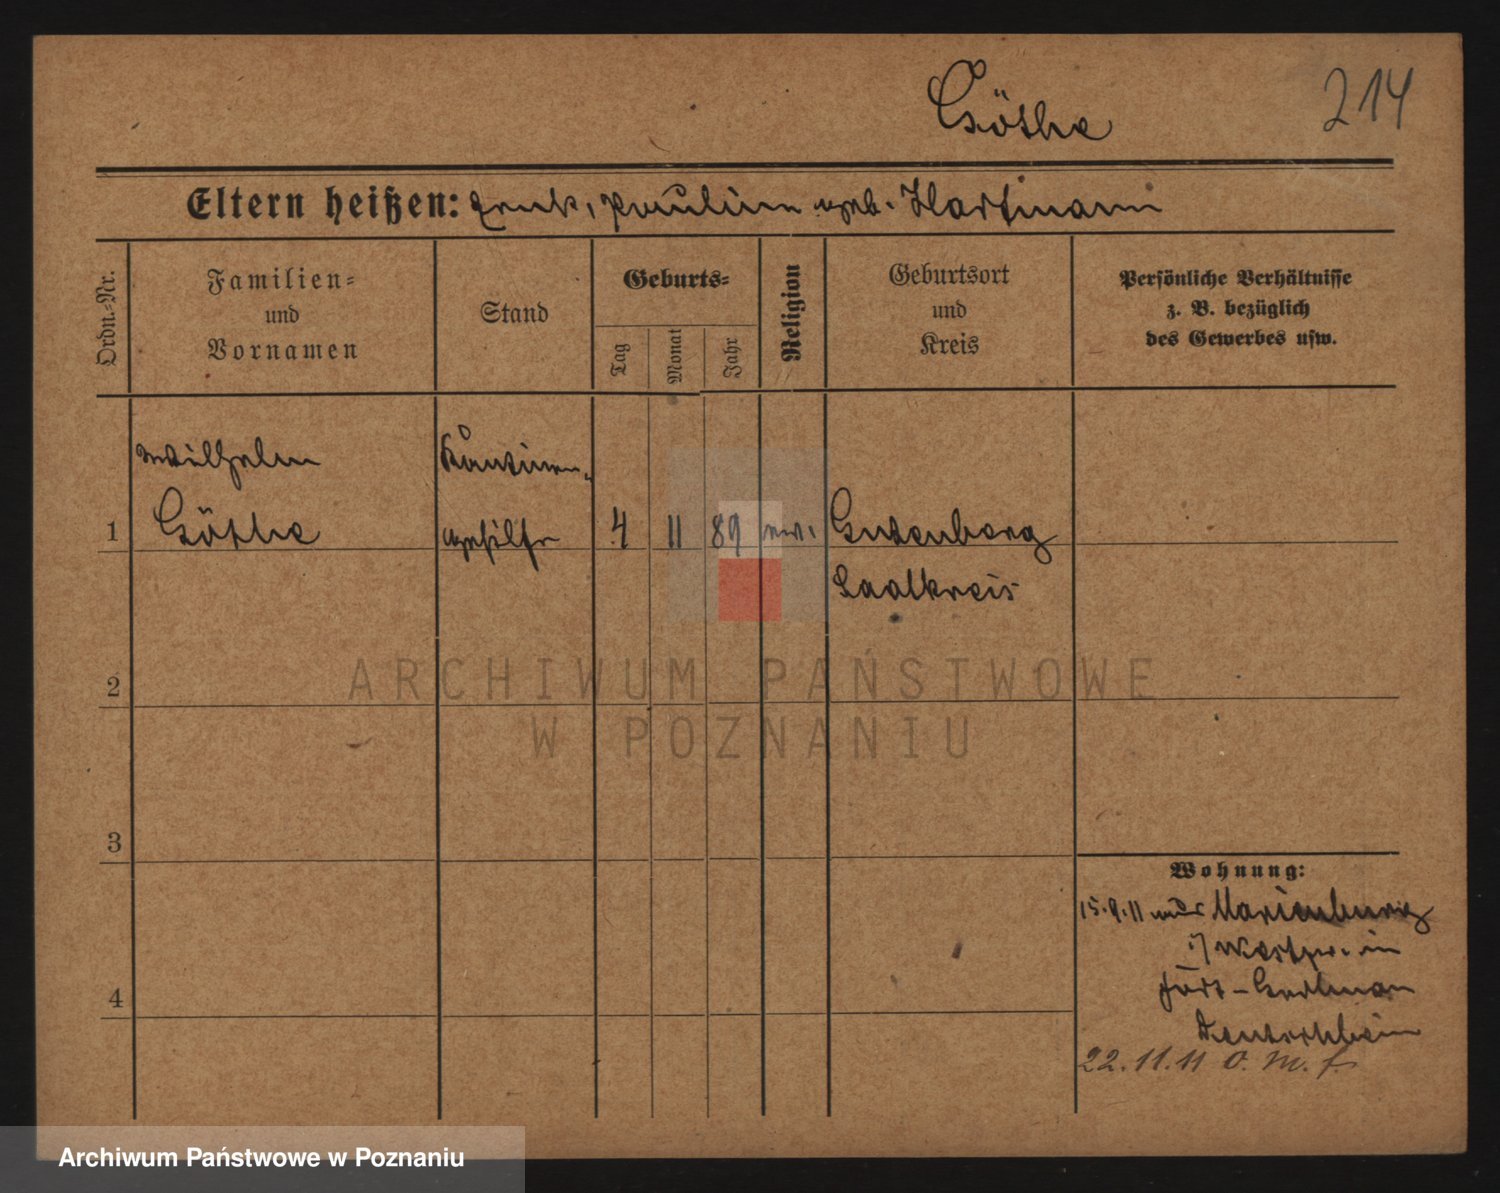 Göthe
214
Eltern heißen: Frank, Pauline geb. Hartmann
Ordn.-Nr.
Familien-
und
Vornamen
Stand
Geburts-
Tag
Monat
Jahr
Religion
Geburtsort
und
Kreis
Persönliche Verhältnisse
z. B. bezüglich
des Gewerbes usw.
Wilhelm
Kantinen-
1 Göthe gehilfe 4 11 89 ev. Gutenberg
Saalkreis
2
3
4
Wohnung:
15.9.11 aus Marienburg
i/ Westpr. in
Fort-Grolman
22.11.11 O. M. f.
ARCHIWUM PAŃSTWOWE
W POZNANIU
Archiwum Państwowe w Poznaniu